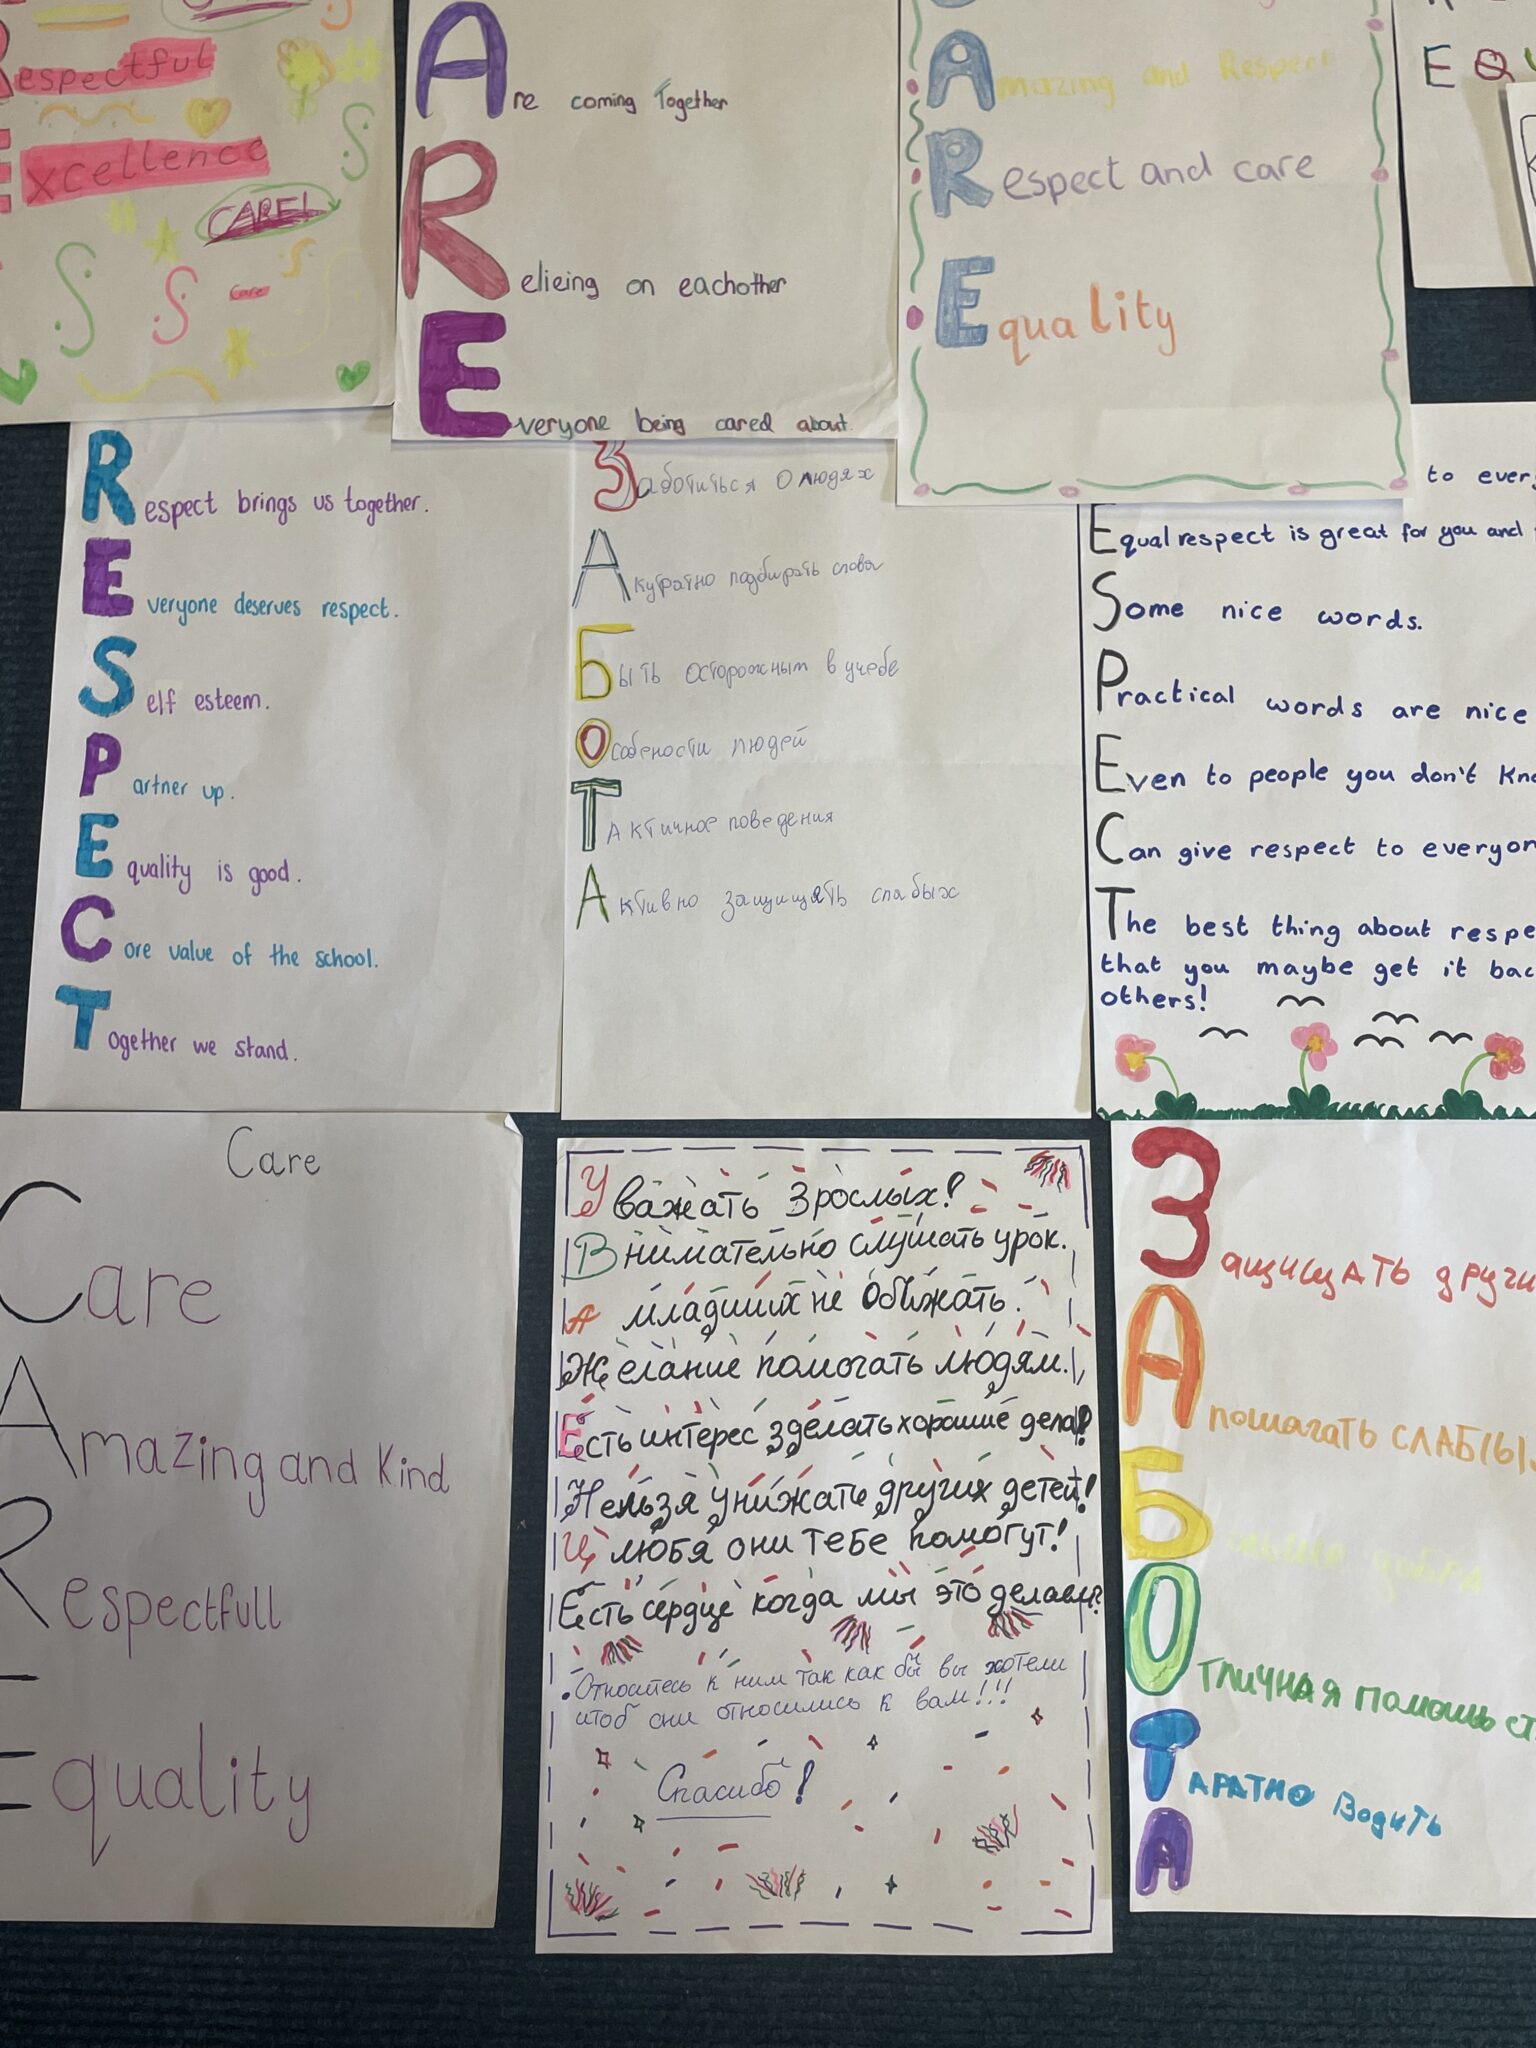 Respectful
Excellence
CARE!
Care
Are coming Together
Relieing on eachother
Everyone being cared about.
Amazing and Respect
Respect and care
Equality
Respect brings us together.
Everyone deserves respect.
Self esteem.
Partner up.
Equality is good.
Core value of the school.
Together we stand.
Заботиться о людях
Акуратно подбирать слова
Быть осторожным в учебе
Особености людей
Тактичное поведения
Активно защищать слабых
Equal respect is great for you and
Some nice words.
Practical words are nice
Even to people you don't
Can give respect to
The best thing about
that you maybe get it
others!
Care
Care
Amazing and Kind
Respectfull
Equality
Уважать зрослых!
Внимательно слушать урок.
А младших не обижать.
Желание помогать людям.
Есть интерес зделать хорошие дела!
Нельзя унижать других детей!
И любя они тебе помогут!
Есть сердце когда мы это делаем?
Относитесь к ним так как бы вы хотели
чтоб они относились к вам!!!
Спасибо!
Защищать
А помагать
Б
Отличная помощь
Таратно водить
А